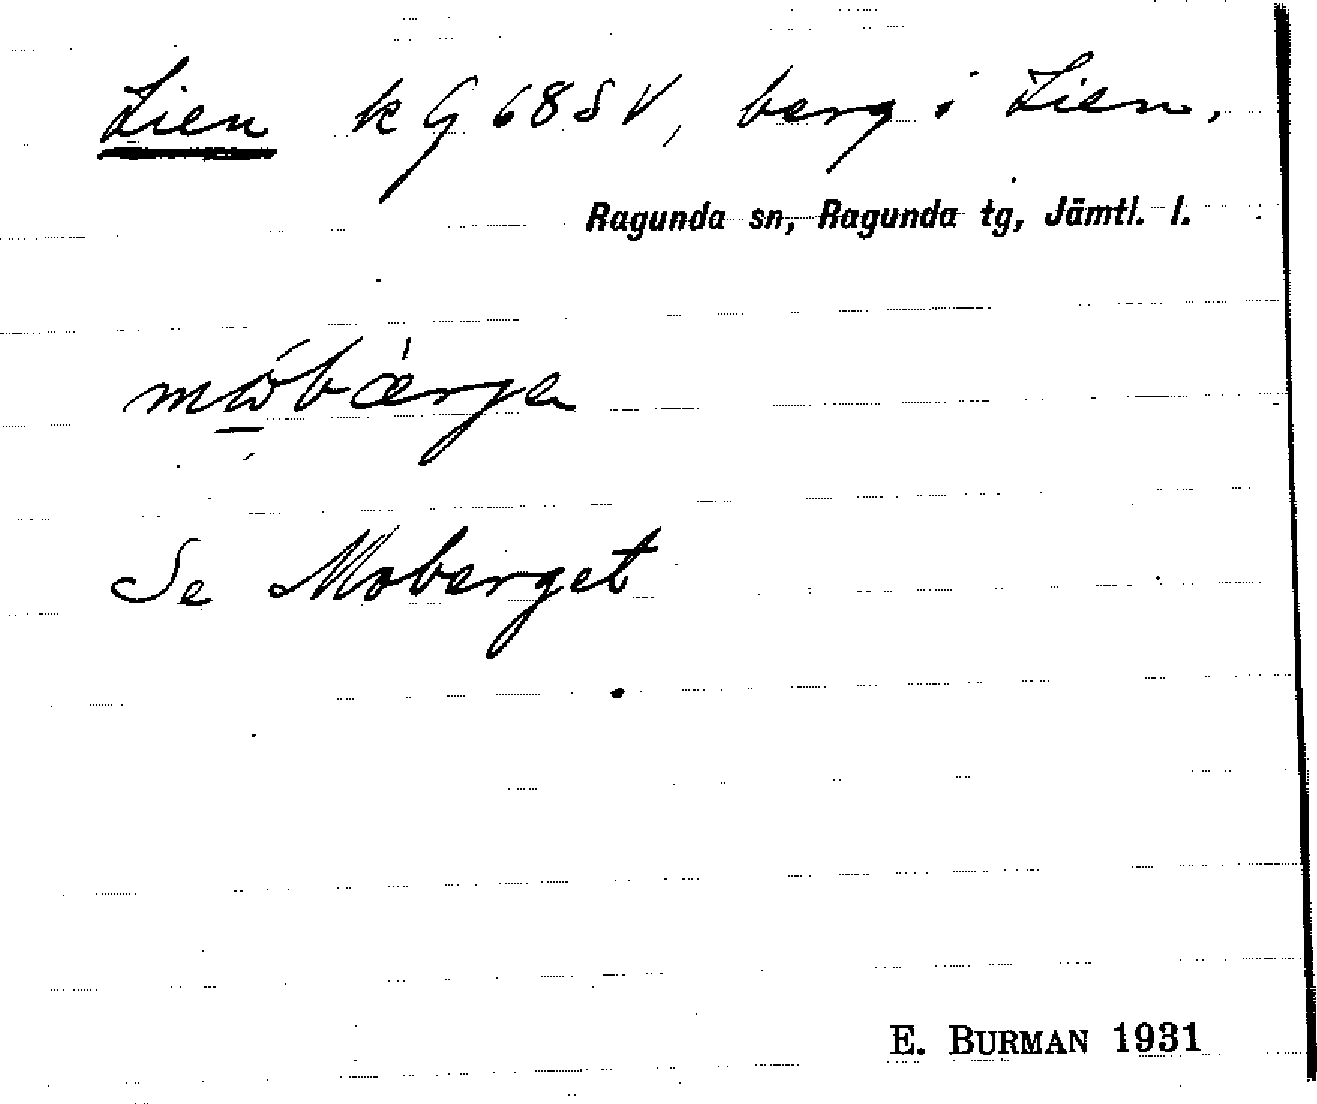 Lien kG 68 S V, berg i Lien.
Ragunda sn, Ragunda tg, Jämtl. l.
Se Moberget
E. BURMAN 1931